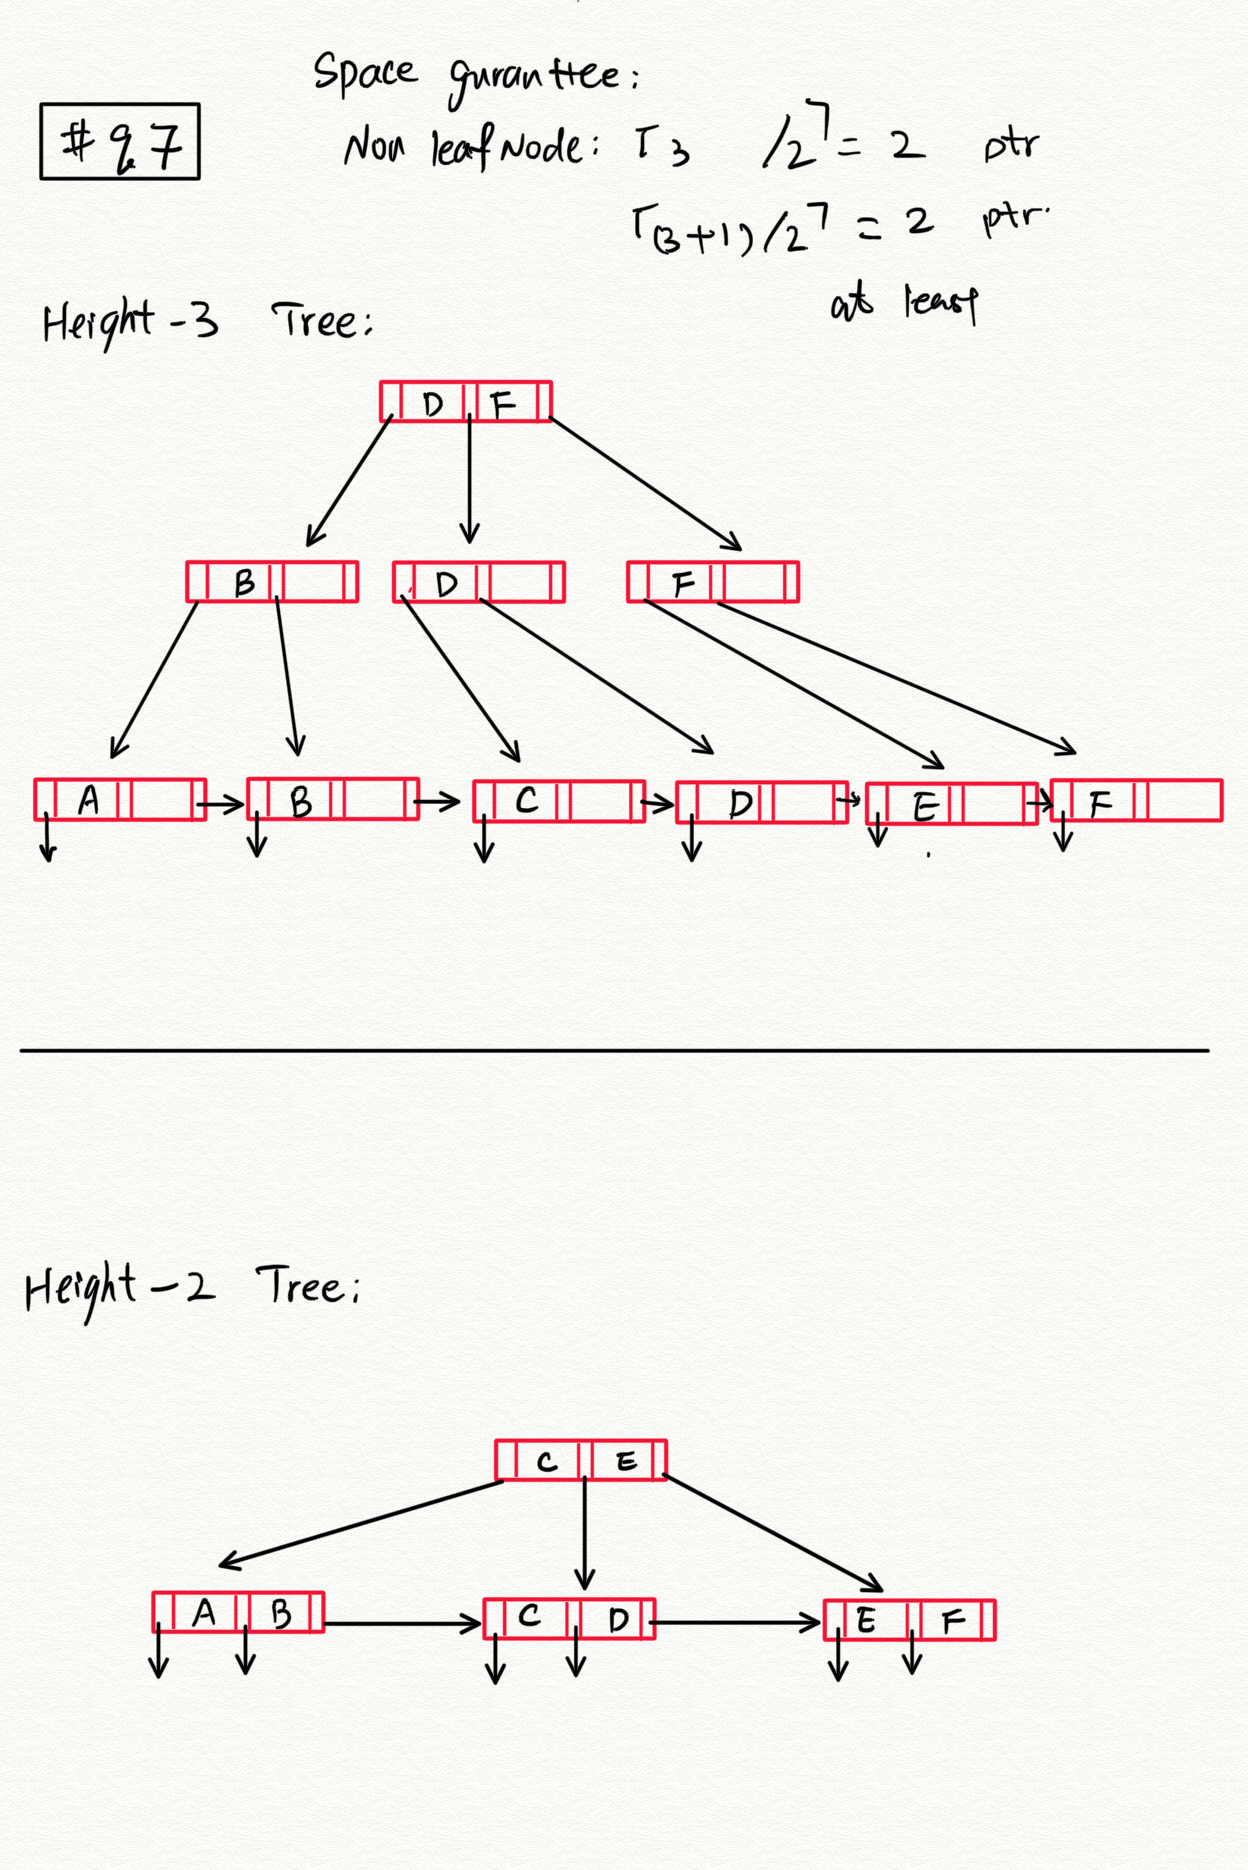 Space guranttee:
# q7
Non leaf Node: ⌈3 /2⌉ = 2 ptr
⌈(3+1)/2⌉ = 2 ptr.
at least
Height-3 Tree:
D F
B D F
A B C D E F
Height-2 Tree:
C E
A B C D E F